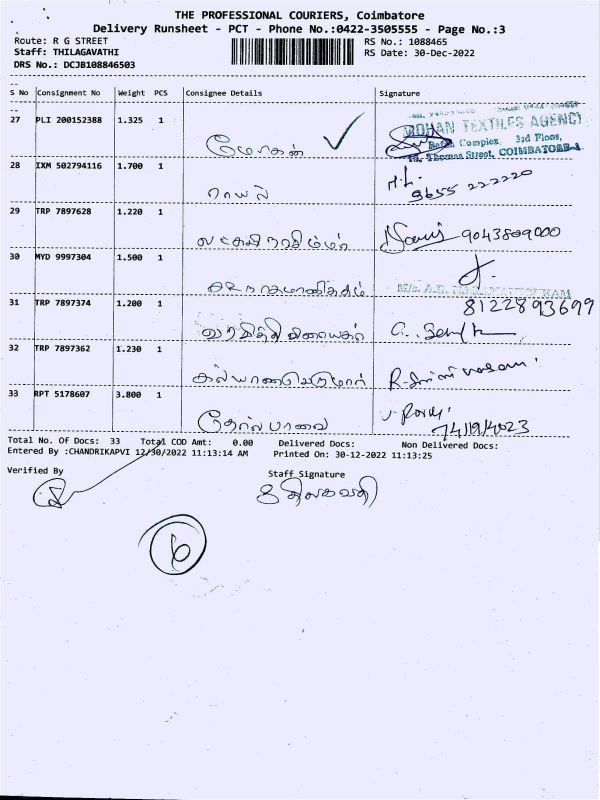 THE PROFESSIONAL COURIERS, Coimbatore
Delivery Runsheet - PCT - Phone No.:0422-3505555 - Page No.:3
Route: R G STREET RS No.: 1088465
Staff: THILAGAVATHI RS Date: 30-Dec-2022
DRS No.: DCJB108846503
S No Consignment No Weight PCS Consignee Details Signature
27 PLI 200152388 1.325 1
மோகன் ROHAN TEXTILES AGENCY
Complex, 3rd Floor,
Thomas Street, COIMBATORE-1
28 IXM 502794116 1.700 1
ராயல் 9655 222220
29 TRP 7897628 1.220 1
லட்சுமி நரசிம்மர் 9043809000
30 MYD 9997304 1.500 1
M/s. A.R.
31 TRP 7897374 1.200 1 8122893699
விநாயகர்
32 TRP 7897362 1.230 1
கல்யாண பெருமாள்
33 RPT 5178607 3.800 1
தோல்பாவை
Total No. Of Docs: 33 Total COD Amt: 0.00 Delivered Docs: Non Delivered Docs:
Entered By :CHANDRIKAPVI 12/30/2022 11:13:14 AM Printed On: 30-12-2022 11:13:25
Verified By Staff Signature
திலகவதி
6